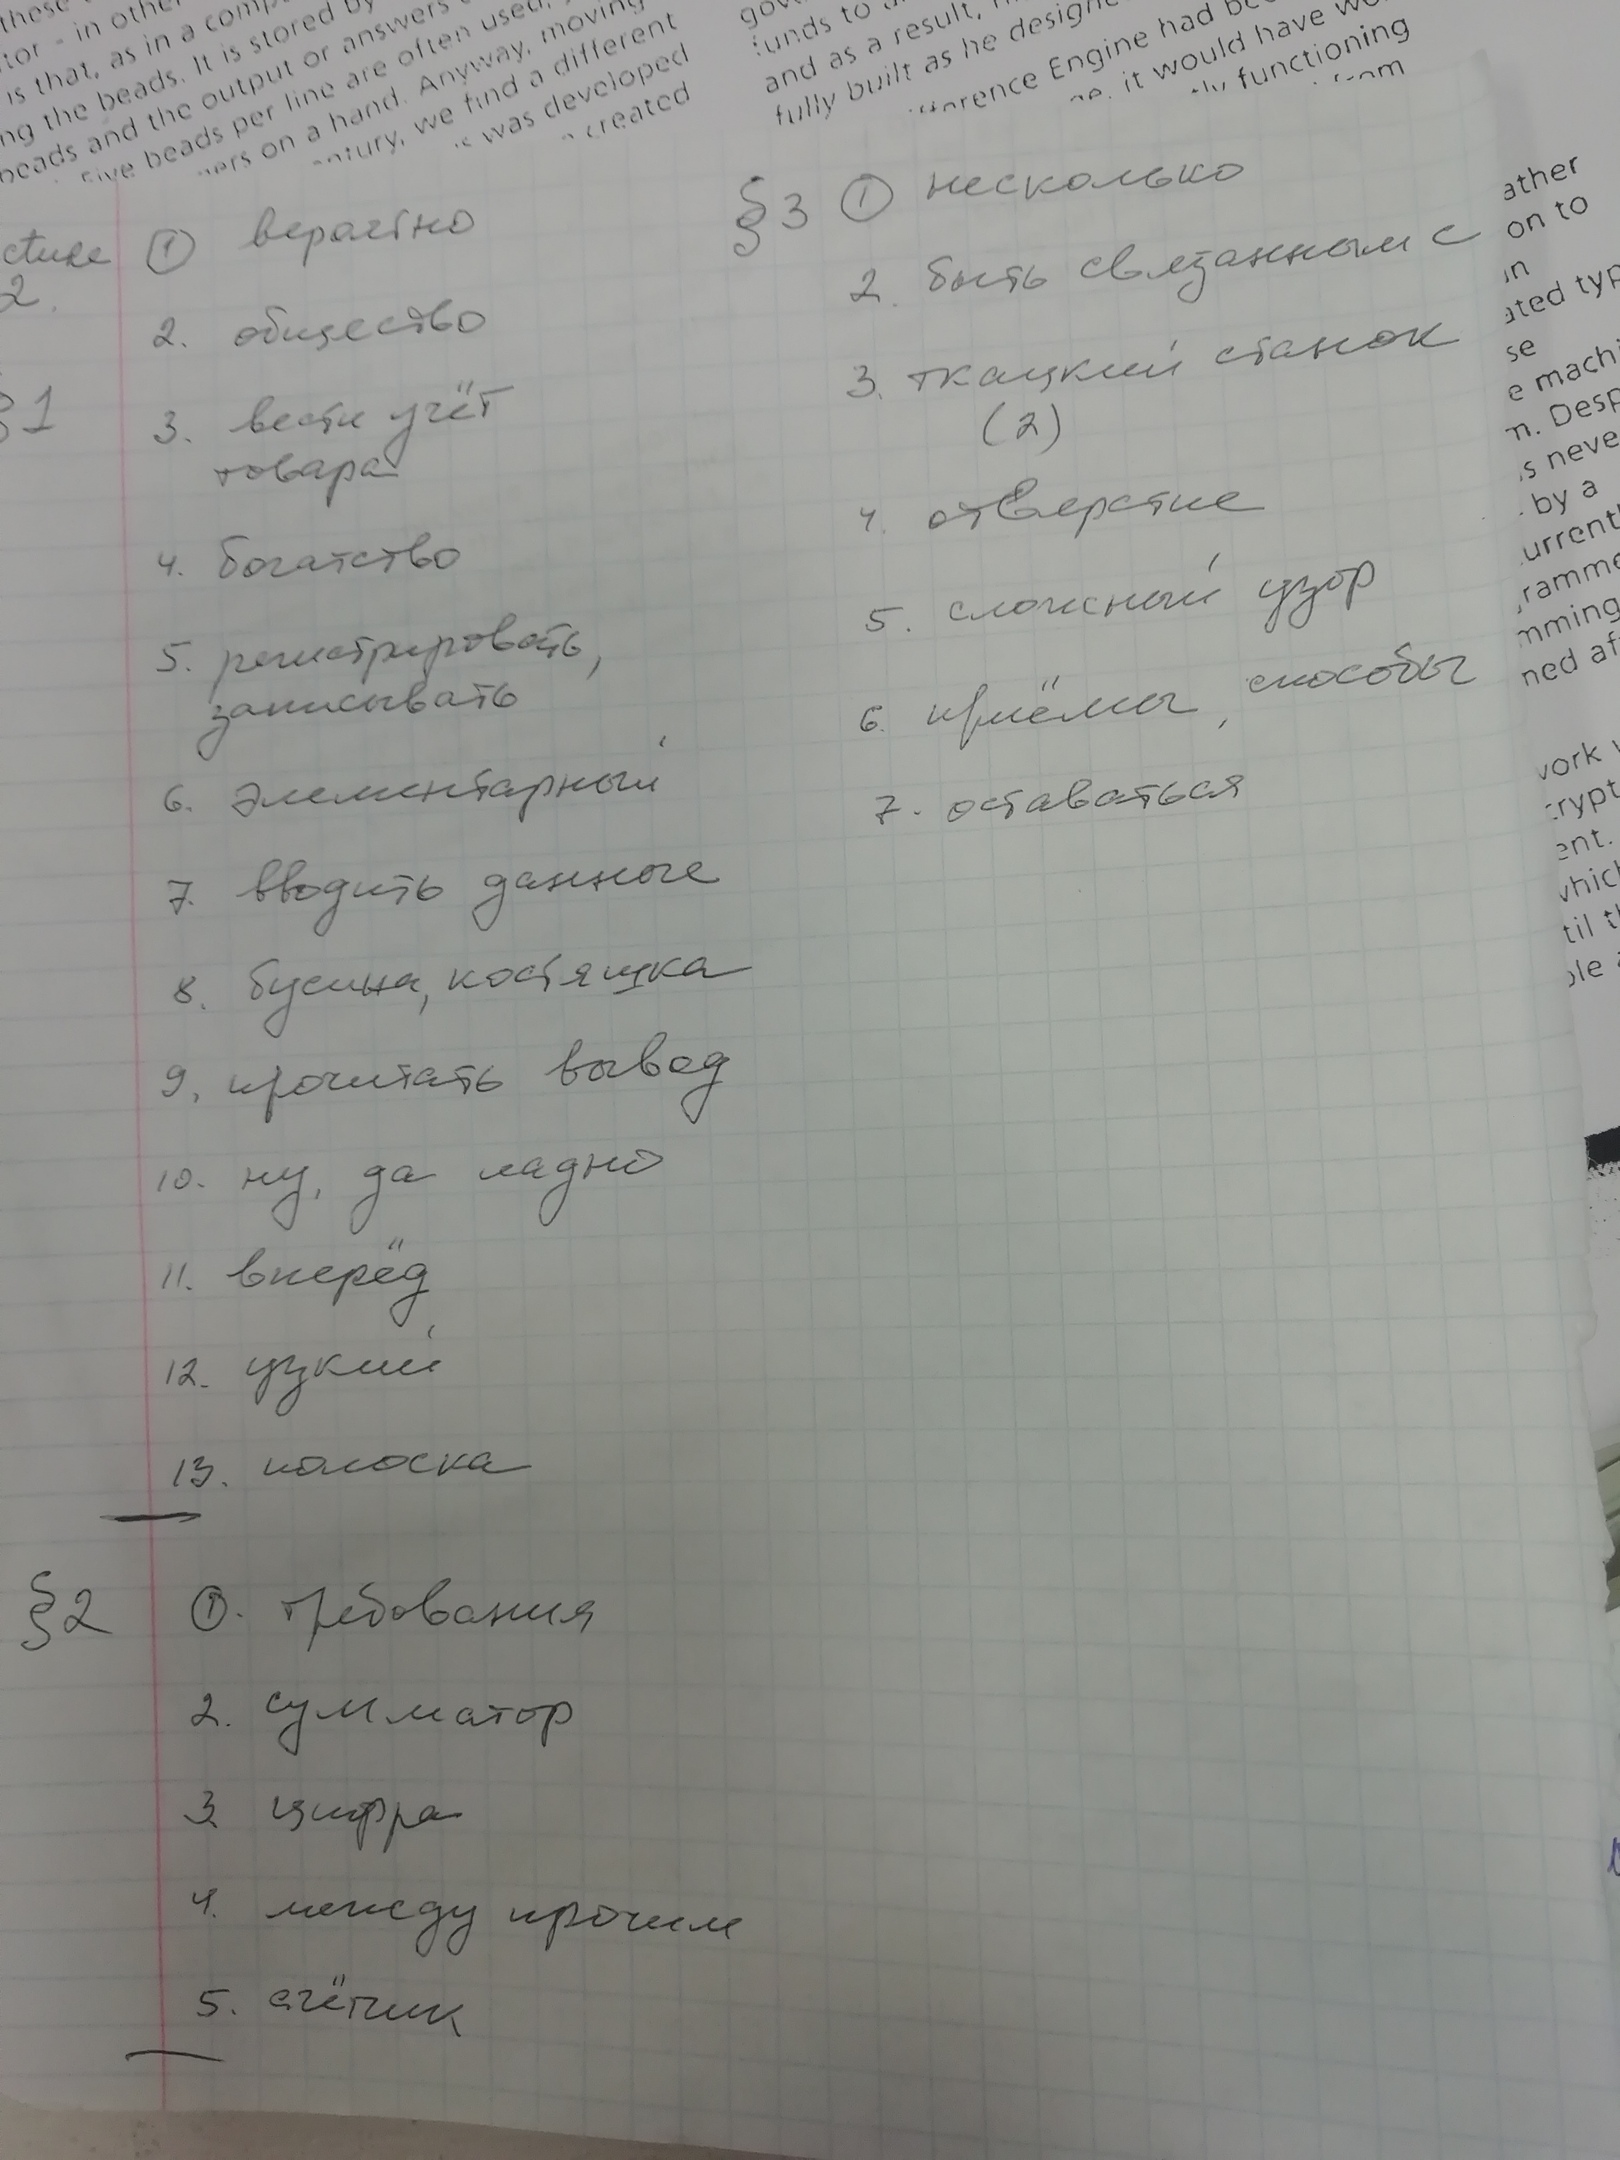 these
tor - in other
is that, as in a comp
ng the beads. It is stored by
beads and the output or answers
five beads per line are often used,
on a hand. Anyway, moving
we find a different
was developed
created
unds to
and as a result,
fully built as he designe
Engine had be
it would have wo
functioning
from
cture 2.
§1
① вероятно
2. общество
3. вести учёт
товара
4. богатство
5. регистрировать,
записывать
6. элементарный
7. вводить данные
8. бусина, костяшка
9. прочитать вывод
10. ну, да ладно
11. вперёд
12. узкий
13. полоска
§2 ①. требования
2. сумматор
3 цифра
4. между прочим
5. счётчик
§3 ① несколько
2. быть связанным с
3. ткацкий станок
(2)
4. отверстие
5. сложный узор
6. приёмы, способы
7. оставаться
ather
on to
in
ated typ
se
e machi
n. Desp
s neve
by a
urrent
ramme
mming
ned af
work
crypt
ent.
whic
til th
ole